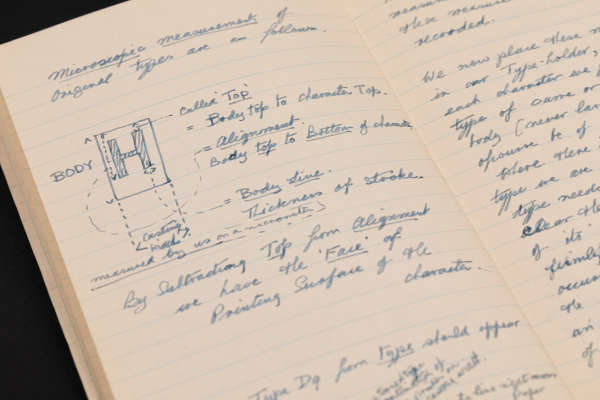 Microscopic measurement of
original types are as follows.
Called 'Top'
= Body top to character Top.
= Alignment.
Body top to Bottom of character
BODY
= Body Line.
Thickness of stroke.
measured by us on a micrometer
By Subtracting Top from Alignment
we have the 'Face' of
Printing Surface of the
character.
Type Dg from type should appear
these measure
recorded.
We now place these
in our Type-holder,
each character we
type of same or
body (never
of course be of
where there
type we are
type needs
clear the
of its
firmly
occur
the
an
of